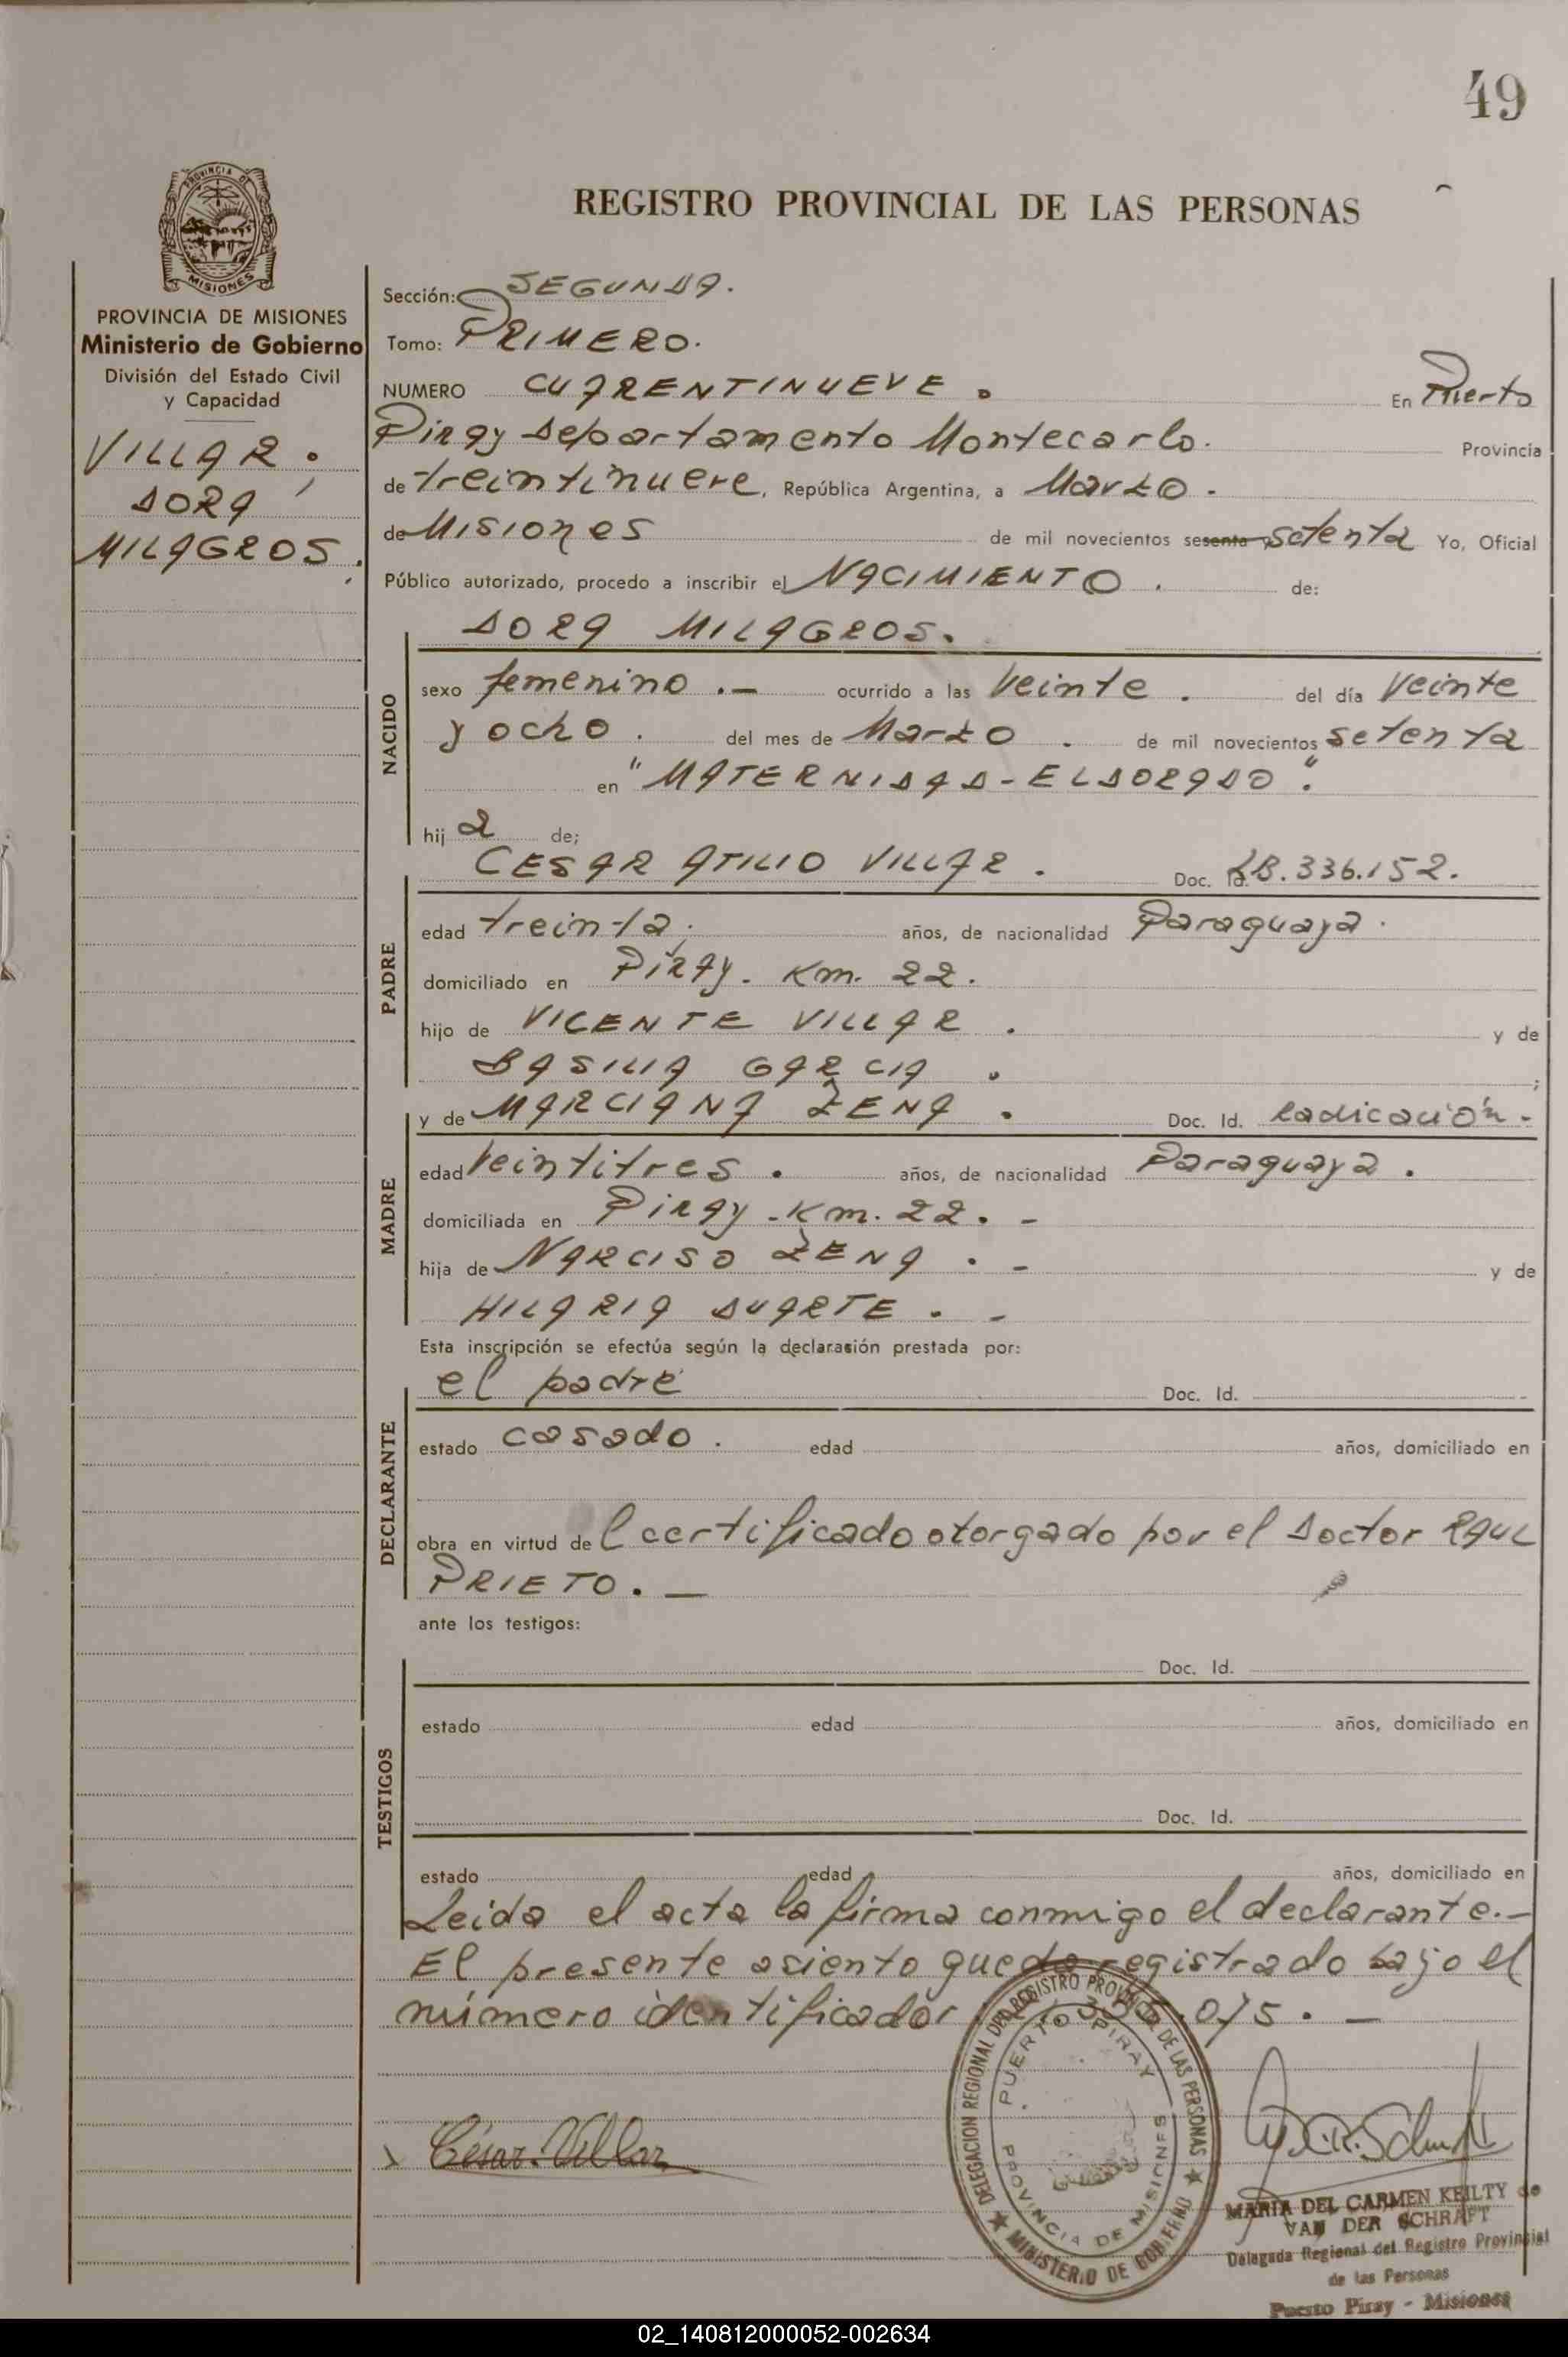 49
PROVINCIA DE
MISIONES
REGISTRO PROVINCIAL DE LAS PERSONAS
PROVINCIA DE MISIONES
Ministerio de Gobierno
División del Estado Civil
y Capacidad
VILLAR.
DORA
MILAGROS.
Sección: SEGUNDA.
Tomo: PRIMERO.
NUMERO CUARENTINUEVE. En Puerto
Piray Departamento Montecarlo. Provincia
de treintinueve, República Argentina, a Marzo.
de Misiones de mil novecientos sesenta setenta Yo, Oficial
Público autorizado, procedo a inscribir el NACIMIENTO. de:
DORA MILAGROS.
NACIDO
sexo femenino.— ocurrido a las Veinte. del día Veinte
y ocho. del mes de Marzo. de mil novecientos setenta
en "MATERNIDAD-ELDORADO".
hij a de;
CESAR ATILIO VILLAR. Doc. Id. 336.152.
PADRE
edad treinta. años, de nacionalidad Paraguaya.
domiciliado en Piray. Km. 22.
hijo de VICENTE VILLAR. y de
BASILIA GARCIA. ;
y de MARCIANA ZENA. Doc. Id. Radicación.-
MADRE
edad Veintitres. años, de nacionalidad Paraguaya.
domiciliada en Piray-Km. 22.-
hija de NARCISO ZENA.- y de
HILARIA DUARTE.-
Esta inscripción se efectúa según la declaración prestada por:
el padre Doc. Id.
DECLARANTE
estado casado. edad años, domiciliado en
obra en virtud de l certificado otorgado por el Doctor RAUL
PRIETO.—
ante los testigos:
TESTIGOS
Doc. Id.
estado edad años, domiciliado en
Doc. Id.
estado edad años, domiciliado en
Leida el acta la firma conmigo el declarante.—
El presente asiento queda registrado bajo el
número identificador .075.—
DELEGACION REGIONAL DEL REGISTRO PROVINCIAL DE LAS PERSONAS
PUERTO PIRAY
PROVINCIA DE MISIONES
MINISTERIO DE GOBIERNO
César Villar
MARIA DEL CARMEN KEILTY de
VAN DER SCHRAFT
Delegada Regional del Registro Provincial
de las Personas
Puesto Piray - Misiones
02_140812000052-002634